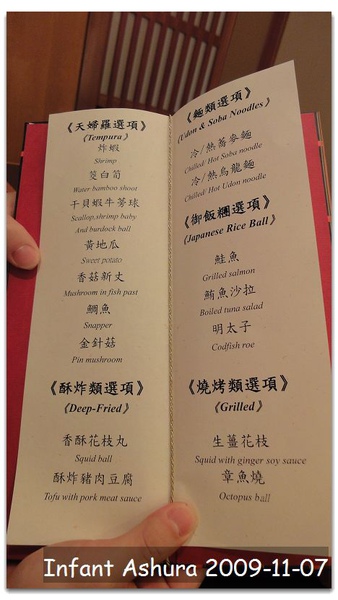 《天婦羅選項》
(Tempura)
炸蝦
Shrimp
筊白筍
Water bamboo shoot
干貝蝦牛蒡球
Scallop,shrimp baby
And burdock ball
黃地瓜
Sweet potato
香菇新丈
Mushroom in fish past
鯛魚
Snapper
金針菇
Pin mushroom
《酥炸類選項》
《Deep-Fried》
香酥花枝丸
Squid ball
酥炸豬肉豆腐
Tofu with pork meat sauce
《麵類選項》
(Udon & Soba Noodles)
冷/熱蕎麥麵
Chilled/ Hot Soba noodle
冷/熱烏龍麵
Chilled/ Hot Udon noodle
《御飯糰選項》
(Japanese Rice Ball)
鮭魚
Grilled salmon
鮪魚沙拉
Boiled tuna salad
明太子
Codfish roe
《燒烤類選項》
《Grilled》
生薑花枝
Squid with ginger soy sauce
章魚燒
Octopus ball
Infant Ashura 2009-11-07